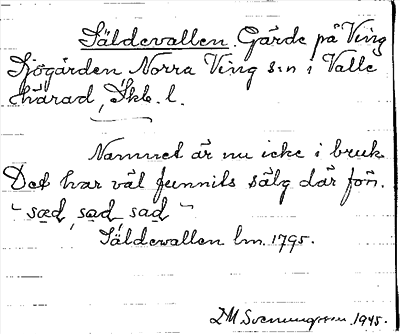 Säldevallen. Gärde på Ving
Sjögården, Norra Ving s:n i Valle
härad, Skb. l.
Namnet är nu icke i bruk.
Det har väl funnits sälg där förr.
- sæd, sad, sad -
Säldewallen lm. 1795.
DM Svenungsson 1945.